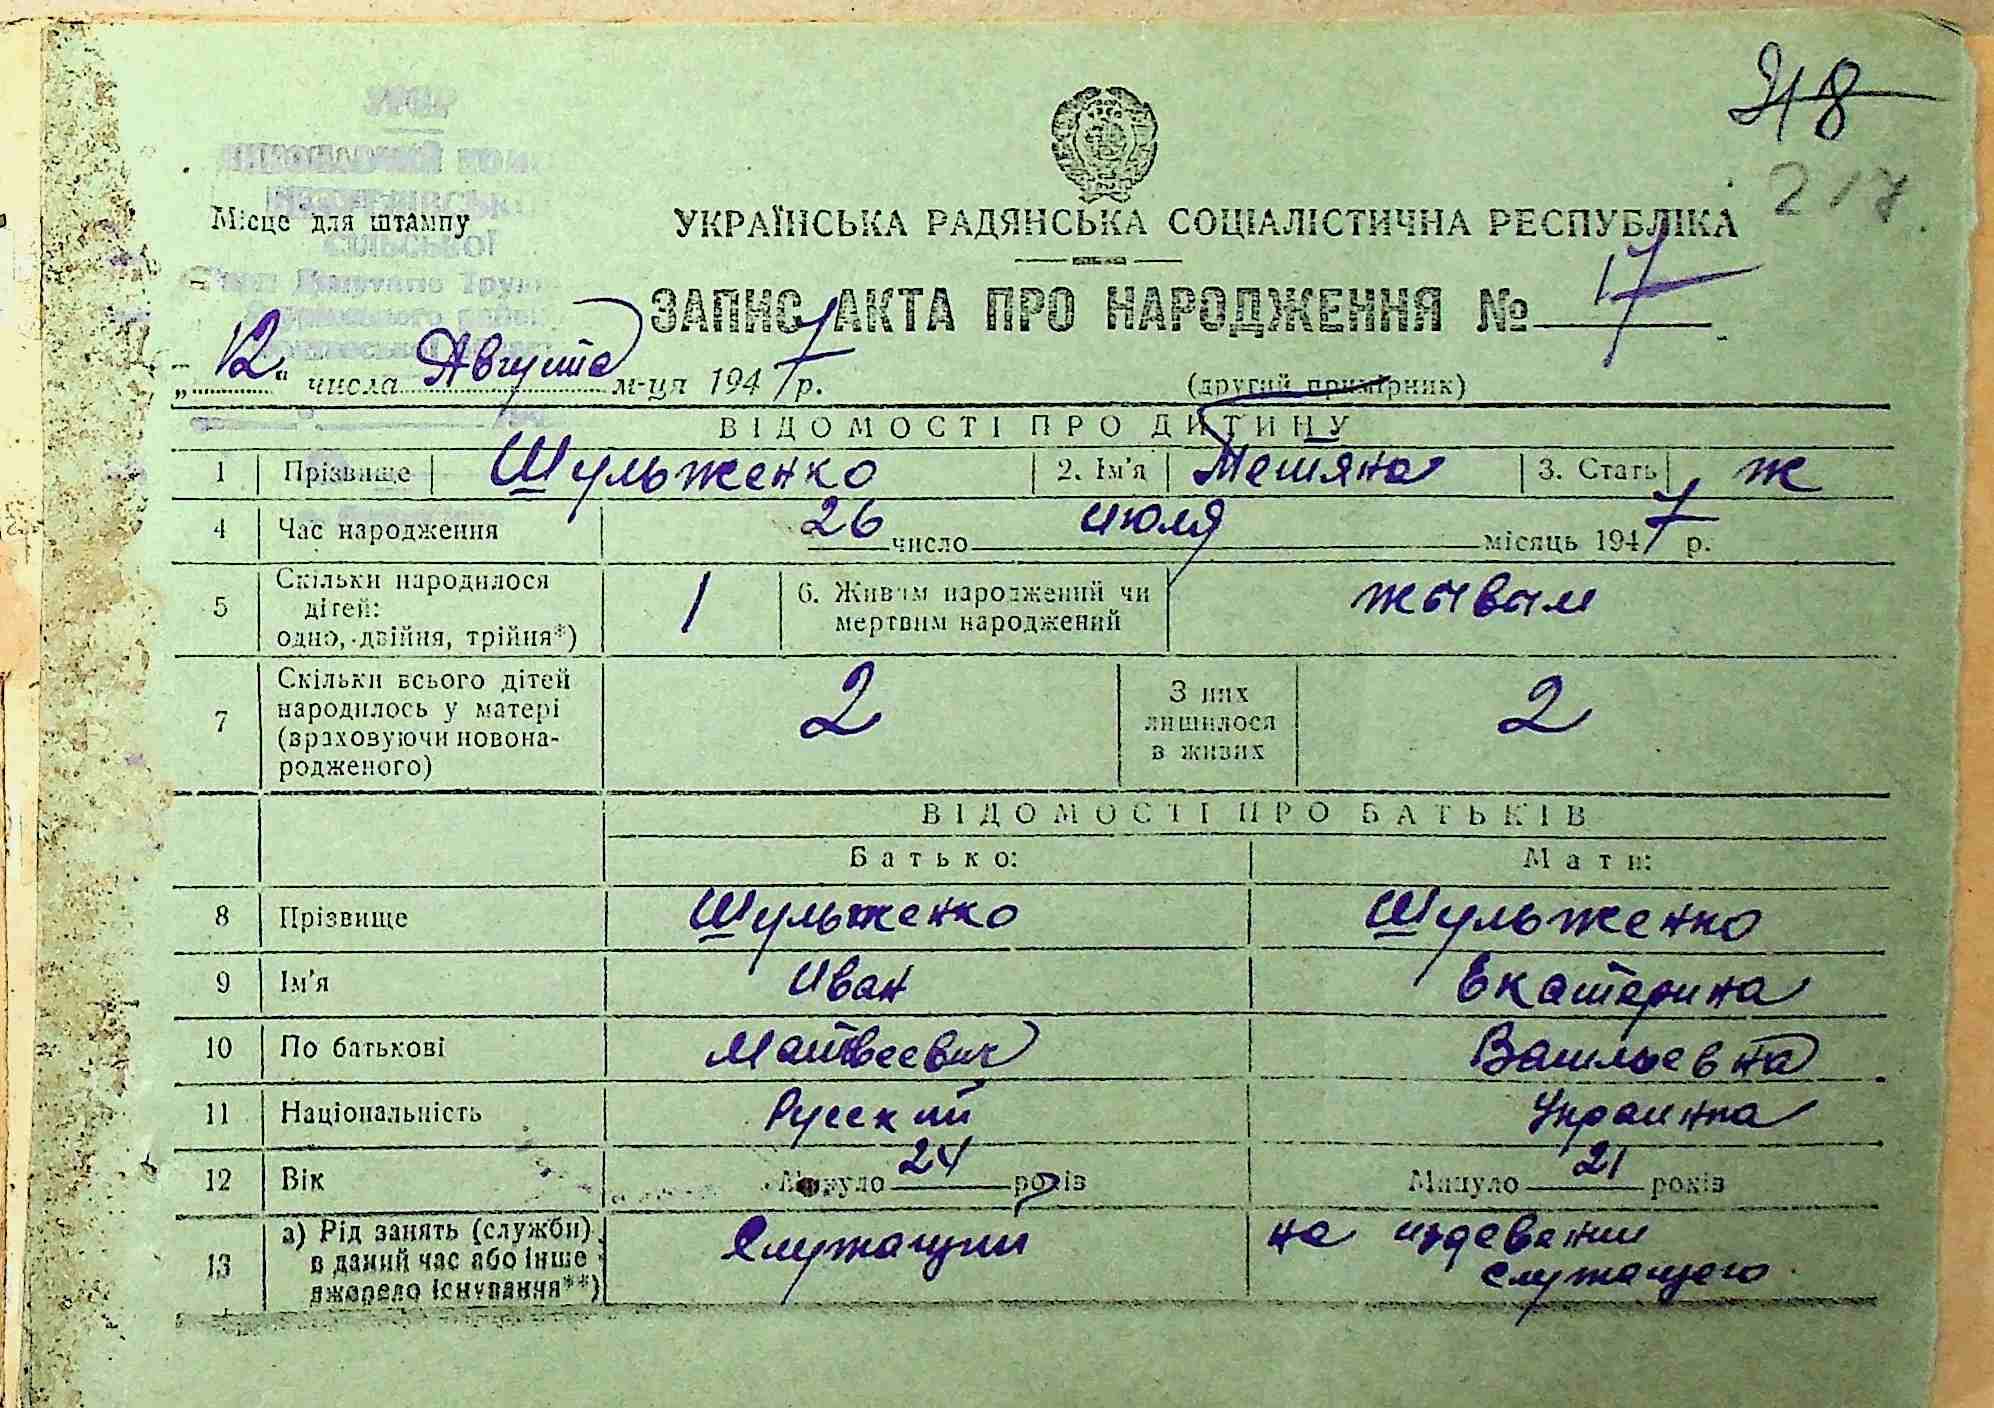 48
217
УРСР
сільської
Місце для штампу
УКРАЇНСЬКА РАДЯНСЬКА СОЦІАЛІСТИЧНА РЕСПУБЛІКА
ЗАПИС АКТА ПРО НАРОДЖЕННЯ № 17
„12“ числа Августа м-ця 1947 р. (другий примірник)
ВІДОМОСТІ ПРО ДИТИНУ
1 Прізвище Шульженко 2. Ім'я Тетяна 3. Стать ж
4 Час народження 26 число июля місяць 1947 р.
5 Скільки народилося дітей: одно, двійня, трійня*) 1 6. Живим народжений чи мертвим народжений жывым
7 Скільки всього дітей народилось у матері (враховуючи новонародженого) 2 З них лишилося в живих 2
ВІДОМОСТІ ПРО БАТЬКІВ
Батько: Мати:
8 Прізвище Шульженко Шульженко
9 Ім'я Иван Екатерина
10 По батькові Матвеевич Васильевна
11 Національність Русский Украинка
12 Вік Минуло 24 років Минуло 21 років
13 а) Рід занять (служби) в даний час або інше джерело існування**) Служащий на иждевении служащего